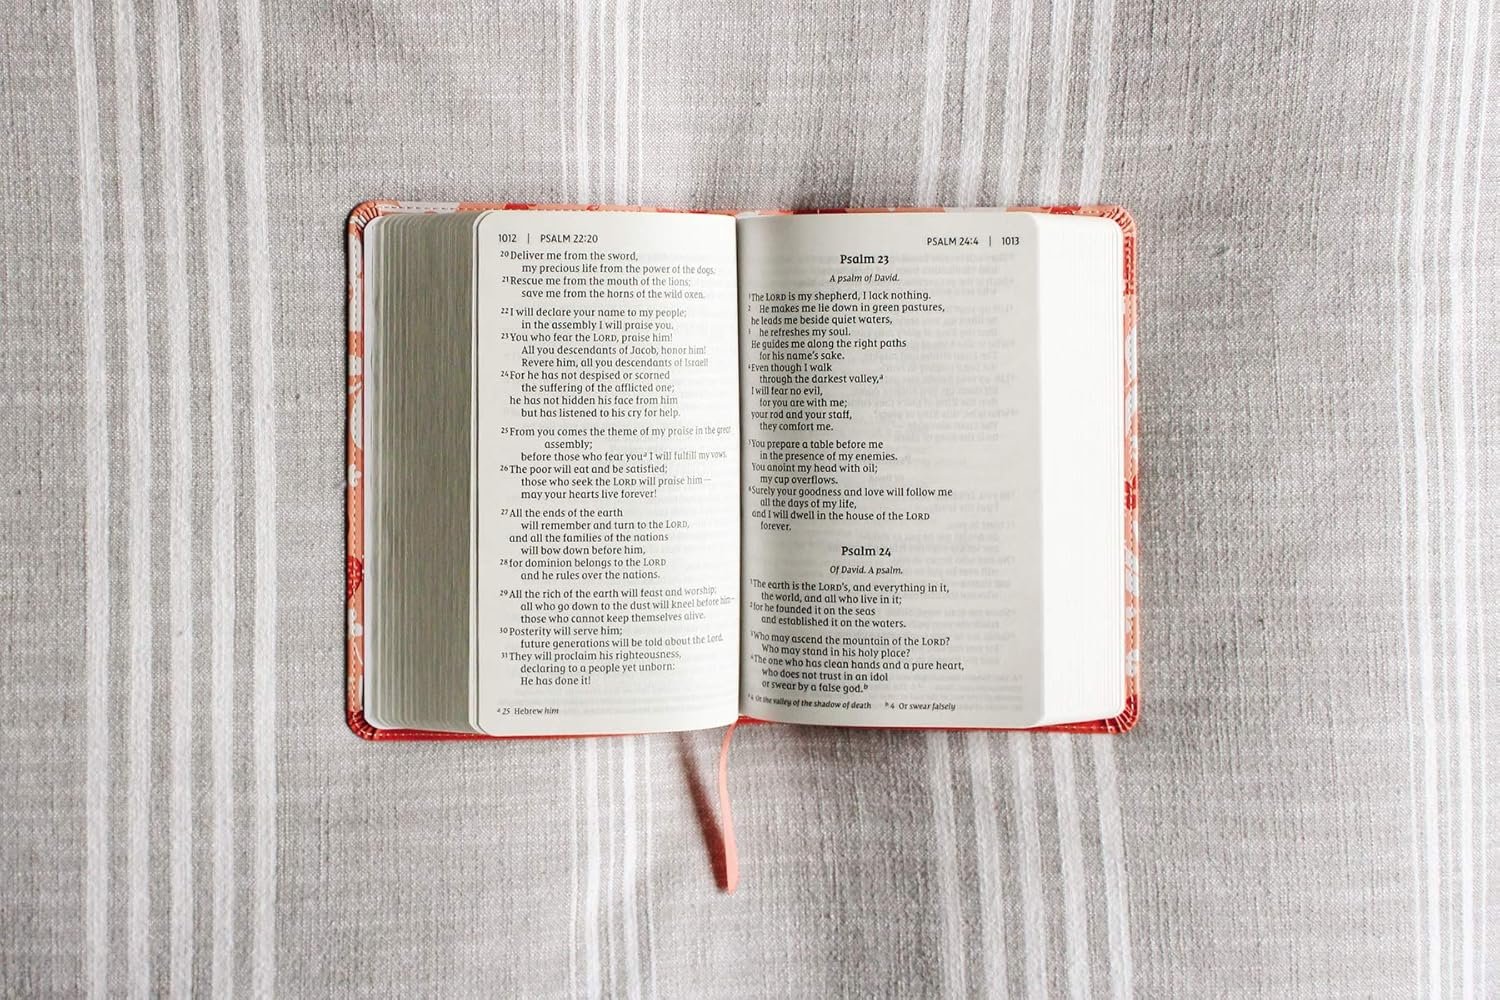 1012 | PSALM 22:20
20 Deliver me from the sword,
my precious life from the power of the dogs.
21 Rescue me from the mouth of the lions;
save me from the horns of the wild oxen.
22 I will declare your name to my people;
in the assembly I will praise you.
23 You who fear the LORD, praise him!
All you descendants of Jacob, honor him!
Revere him, all you descendants of Israel!
24 For he has not despised or scorned
the suffering of the afflicted one;
he has not hidden his face from him
but has listened to his cry for help.
25 From you comes the theme of my praise in the great
assembly;
before those who fear you a I will fulfill my vows.
26 The poor will eat and be satisfied;
those who seek the LORD will praise him—
may your hearts live forever!
27 All the ends of the earth
will remember and turn to the LORD,
and all the families of the nations
will bow down before him,
28 for dominion belongs to the LORD
and he rules over the nations.
29 All the rich of the earth will feast and worship;
all who go down to the dust will kneel before him—
those who cannot keep themselves alive.
30 Posterity will serve him;
future generations will be told about the Lord.
31 They will proclaim his righteousness,
declaring to a people yet unborn:
He has done it!
a 25 Hebrew him
PSALM 24:4 | 1013
Psalm 23
A psalm of David.
1 The LORD is my shepherd, I lack nothing.
2 He makes me lie down in green pastures,
he leads me beside quiet waters,
3 he refreshes my soul.
He guides me along the right paths
for his name's sake.
4 Even though I walk
through the darkest valley, a
I will fear no evil,
for you are with me;
your rod and your staff,
they comfort me.
5 You prepare a table before me
in the presence of my enemies.
You anoint my head with oil;
my cup overflows.
6 Surely your goodness and love will follow me
all the days of my life,
and I will dwell in the house of the LORD
forever.
Psalm 24
Of David. A psalm.
1 The earth is the LORD's, and everything in it,
the world, and all who live in it;
2 for he founded it on the seas
and established it on the waters.
3 Who may ascend the mountain of the LORD?
Who may stand in his holy place?
4 The one who has clean hands and a pure heart,
who does not trust in an idol
or swear by a false god. b
a 4 Or the valley of the shadow of death b 4 Or swear falsely